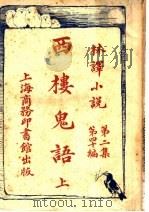 繙譯小説
第二集
第四十編
西樓鬼語
上
上海商務印書館出版